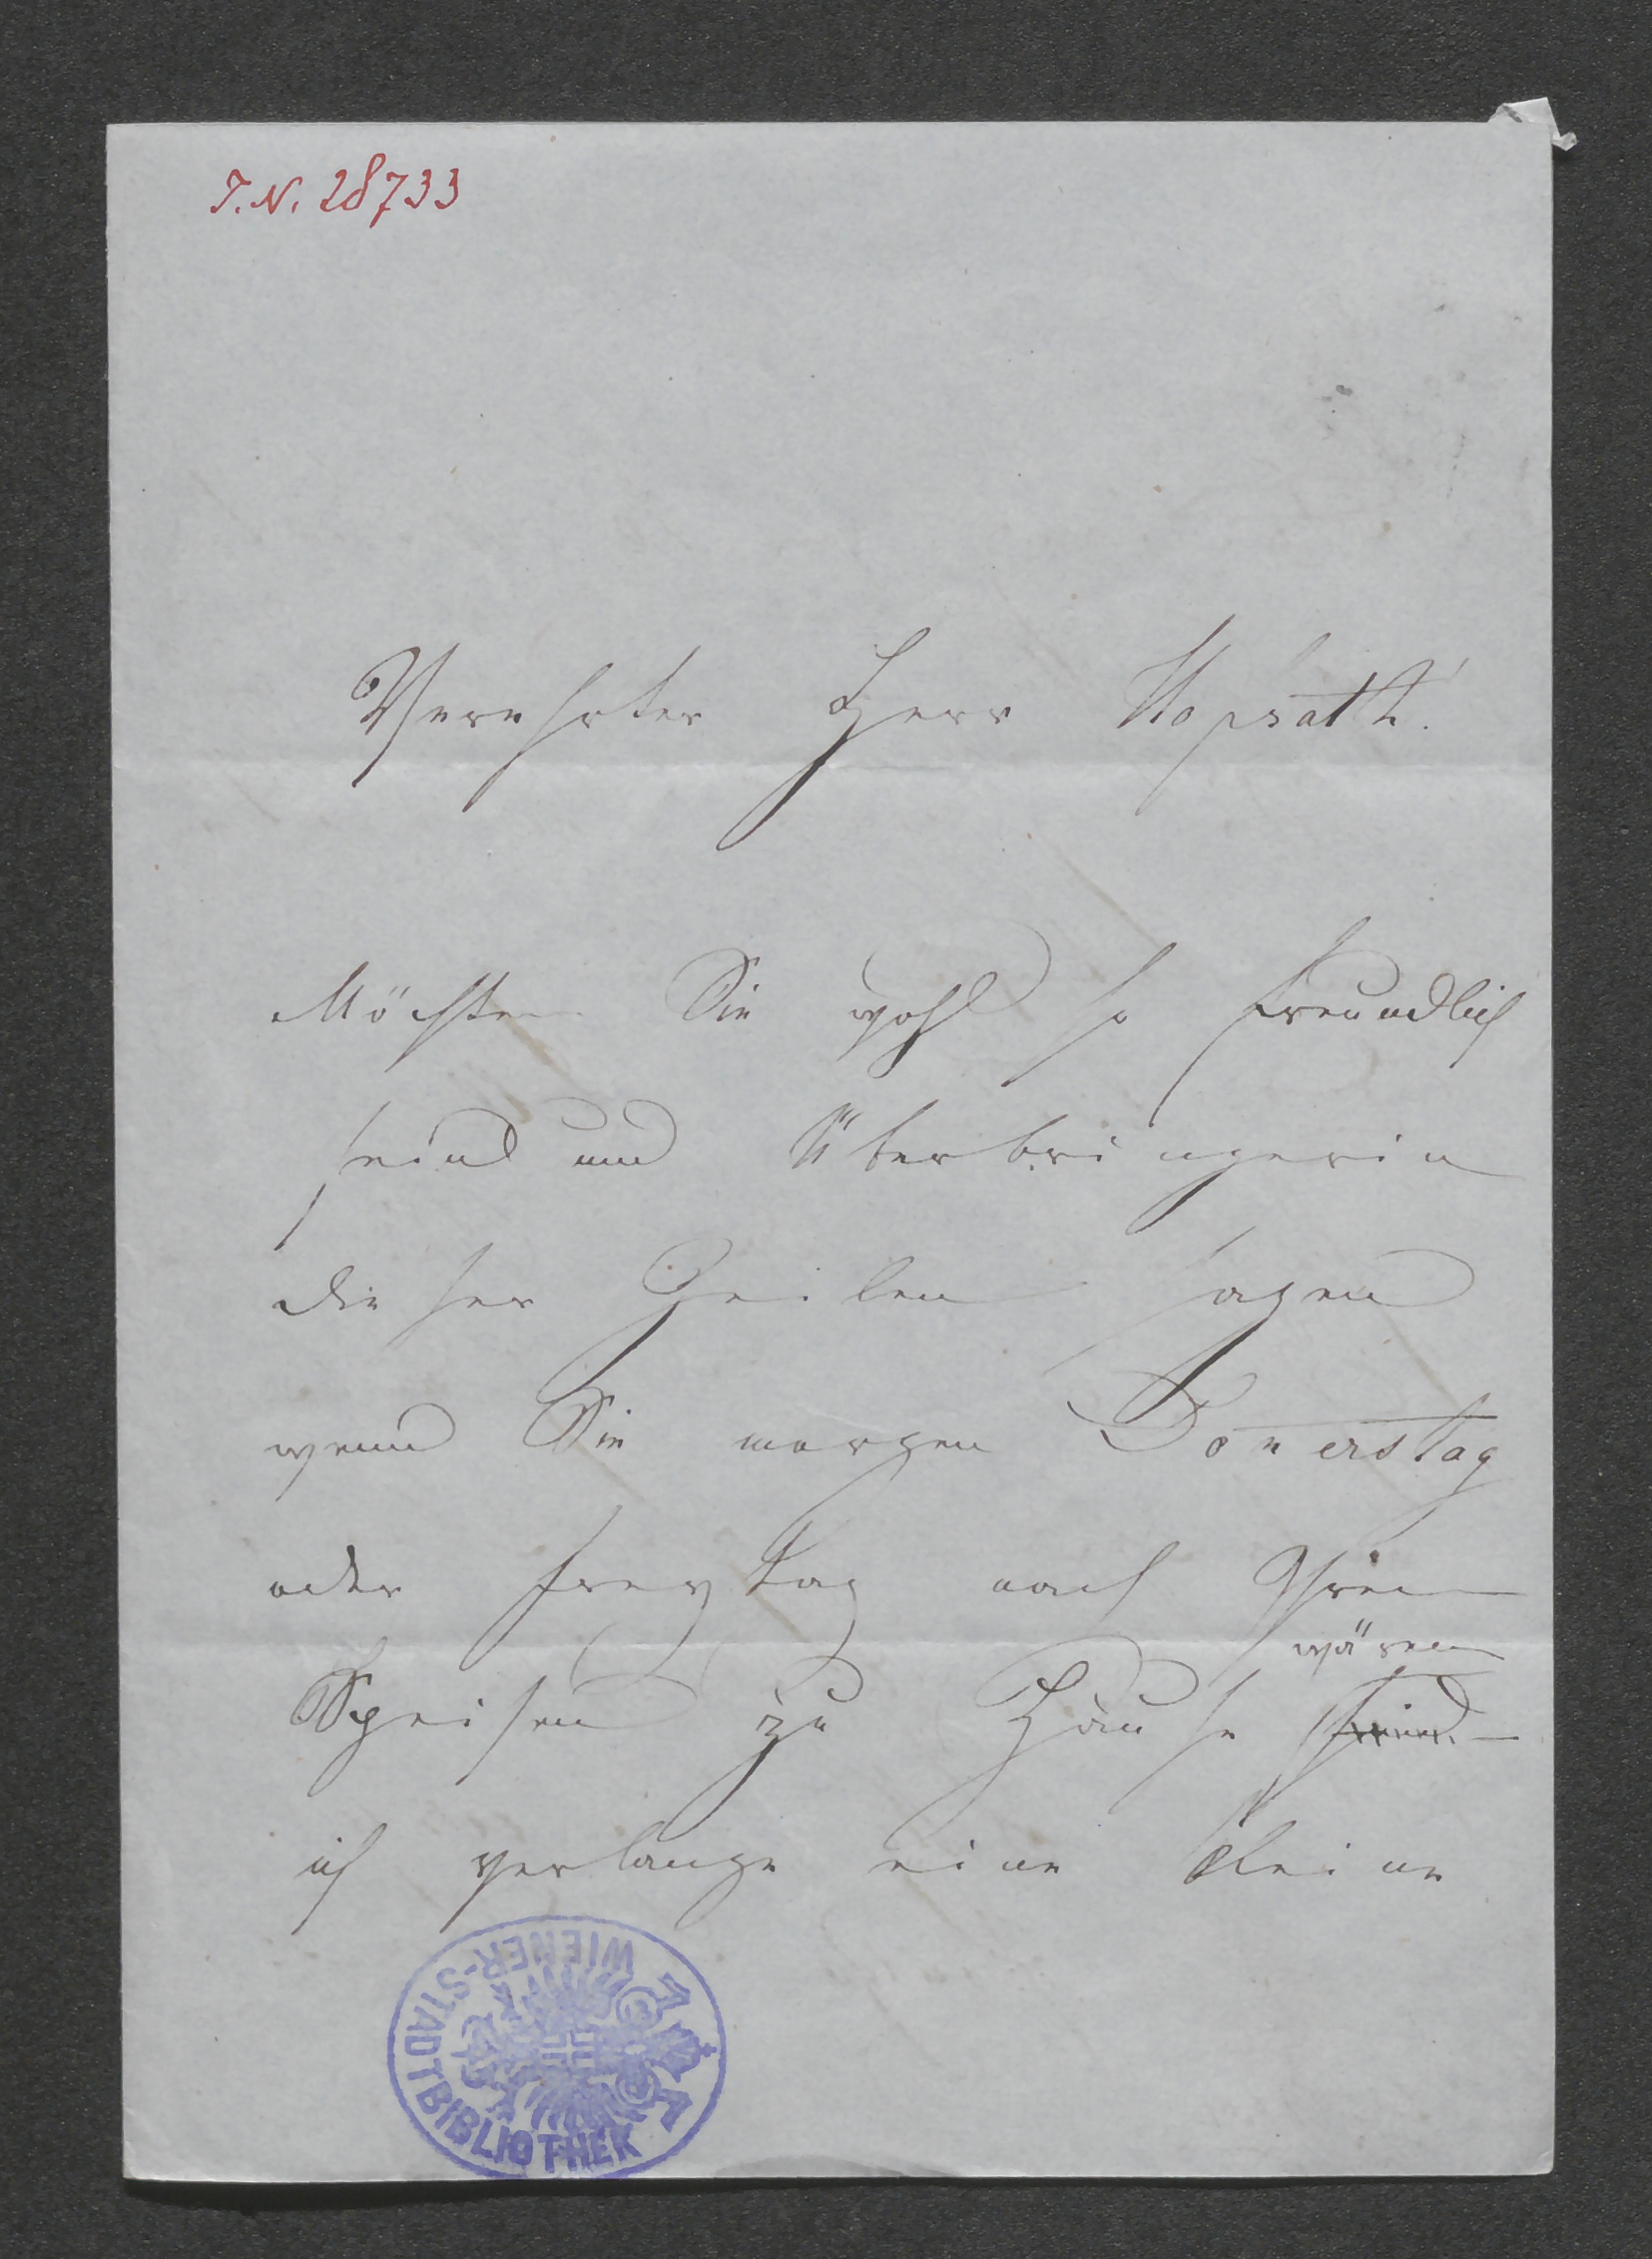 I.N. 28733
Verehrter Herr Hofrath!
Möchten Sie wohl so freundlich
sein und Überbringerin
dieser Zeilen sagen
wenn Sie morgen Donerstag
oder Freytag nach Ihren
wären
Speisen zu Hause sind –
ich verlange eine kleine
WIENER-STADTBIBLIOTHEK